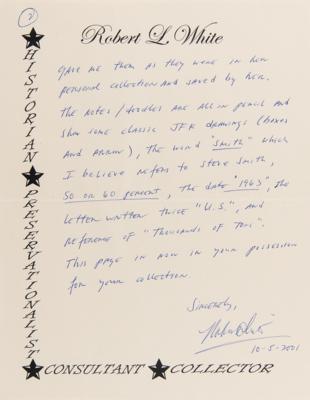 2
Robert L. White
HISTORIAN
PRESERVATIONALIST
gave me them as they were in her
personal collection and saved by her.
The notes/doodles are all in pencil and
show some classic JFK drawings (boxes
and arrow), the word "Smith" which
I believe refers to Steve Smith,
50 or 60 percent, the date "1963", the
letter written twice "U.S.", and
reference of "Thousands of Tons".
This page in now in your possession
for your collection.
Sincerely,
10-5-2001
CONSULTANT COLLECTOR